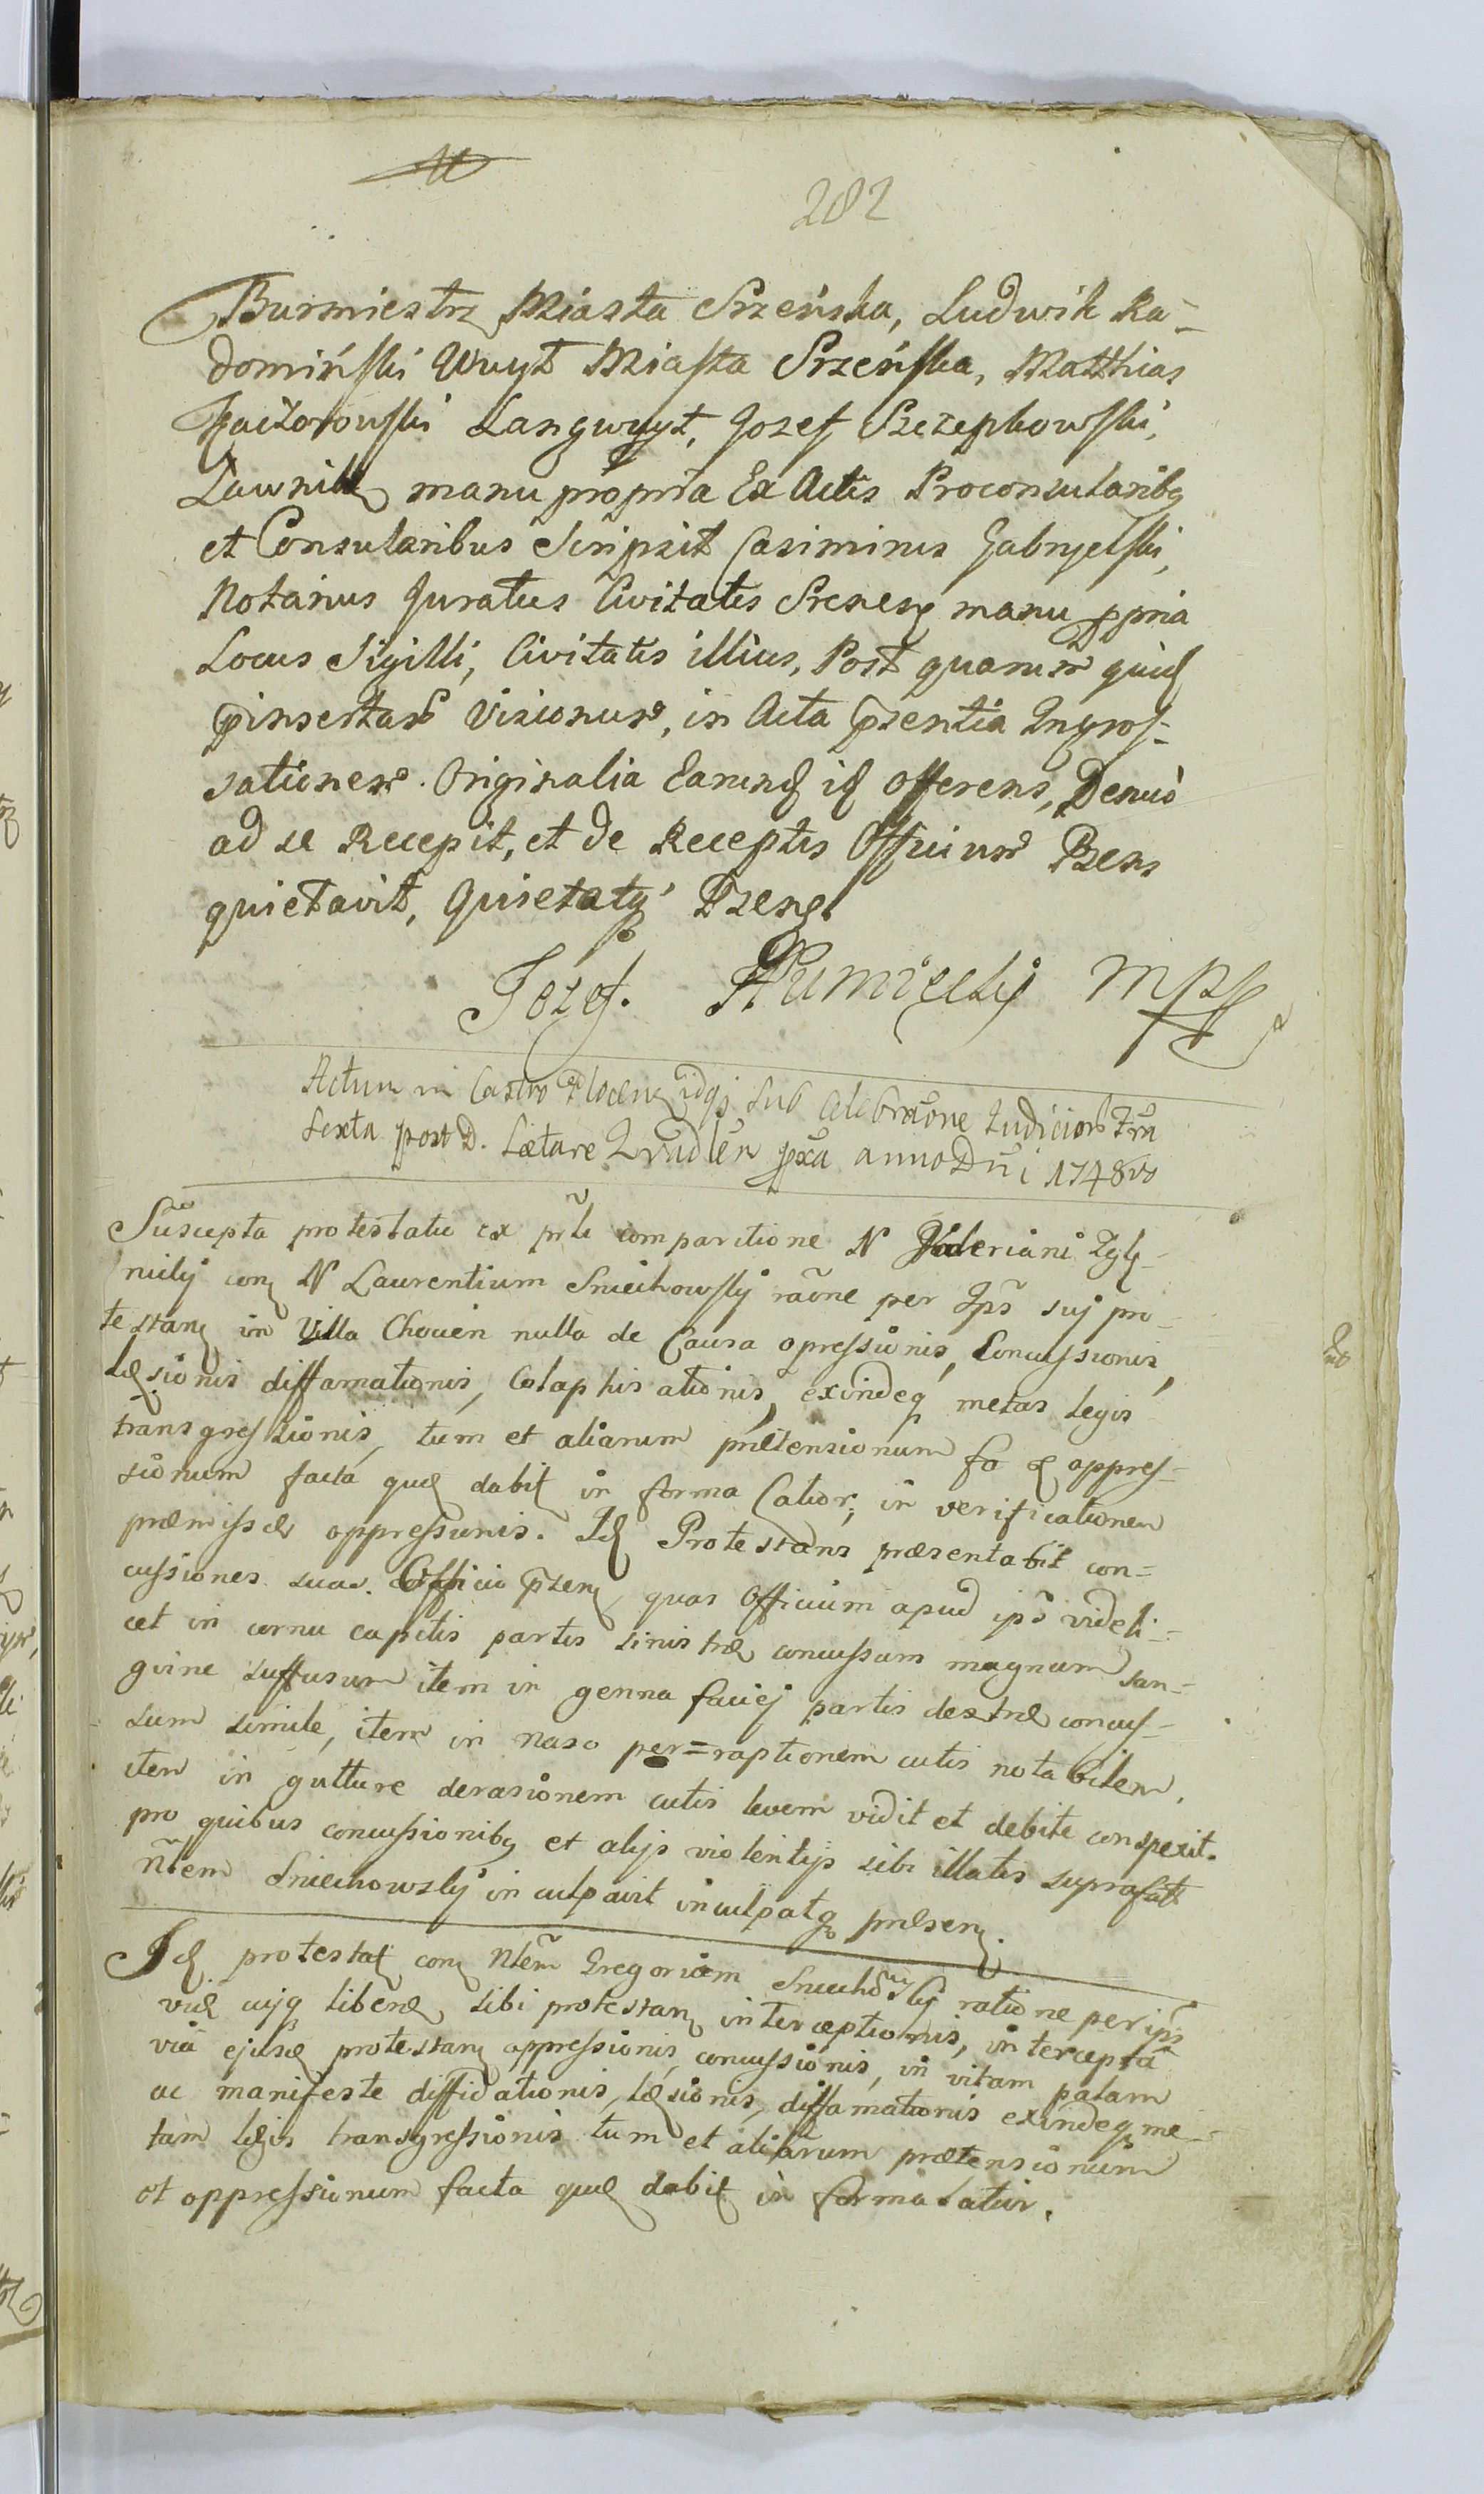 282
Burmiestrz Miasta Srzeńska, Ludwik Ra-
domiński Wuyt Miasta Srzeńska, Matthias
Kaczorowski Langwuyt, Jozef Szczepkowski,
Ławnik manu propria Ex Actis Proconsularibq
et Consularibus Scripsit Casimirus Gabryelski,
Notarius Juratus Civitatis Srenensꝭ manu ppria
Locus Sigilli, Civitatis illius, Post quarum quid
pinsertarū Visionum, in Acta p̃sentia Ingros-
sationem. Originalia Earund id offerens, Denuò
ad se Recepit, et de Receptis Officium Pzens
quietavit, Quietatq Pzens.
Jozef. mpp
Actum in Castro Plocen idq sub celebraõne Judiciorũ Fria
Sexta post D. Lætare Qvadlẽn pxa anno Dñi 1748vo
Suscepta protestatio ex prli comparitione N Valeriani Zgli-
nicky con N Laurentium Sniechowsky raõne per Ips̃ suj pro-
testanꝭ in Villa Chocien nulla de Causa opressionis, Concussionis,
læsionis diffamationis, Colaphisationis, exindeq metas legis
transgressionis, tum et aliarum prætensionum fo & oppres-
sionum facta quæ dabit in forma Latior; in verificationem
præmissæ oppressionis. Id Protestans præsentabit con-
cussiones suas Officio p̃zenꝭ, quas Officium apud ips̃ videli-
cet in cornu capitis partis sinistræ concussum magnum san-
guine suffusum item in genna faciej partis dextræ concus-
sum simile, item in naso per=raptionem cutis notabilem,
item in gutture derasionem cutis levem vidit et debite conspexit.
pro quibus concussionibq et alijs violentijs sibi illatis suprafatt
Ñlem Sniechowsky inculpavit inculpatq præsenꝭ.
Id protestat con Nlẽm Gregorium Sniechowsky ratione per ips̃
viæ cujq liberæ sibi protestanꝭ interceptionis, intercepta
via ejusd protestanꝭ oppressionis, concussionis, in vitam palam
ac manifeste diffidationis, læsionis, diffamationis exindeq me-
tam legis transgressionis tum et aliarum prætensionum
et oppressionum facta quæ dabit in forma Latior.